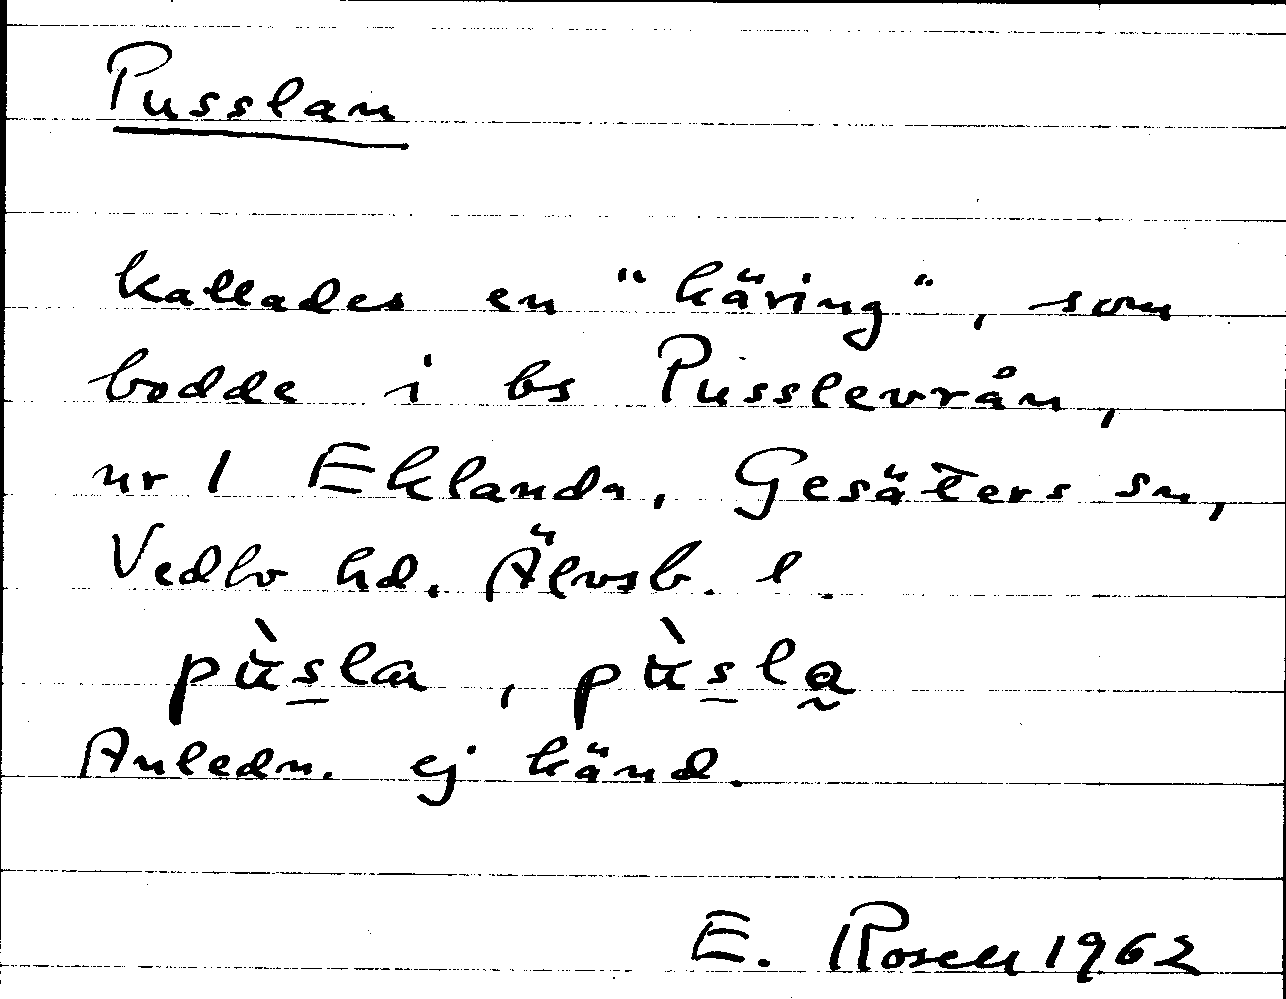 Pusslan
kallades en "käring", som
bodde i bs Pusslevrån,
nr 1 Eklanda, Gesäters sn,
Vedbo hd. Älvsb. l.
pùslan, pùsla
Anledn. ej känd.
E. Rosell 1962